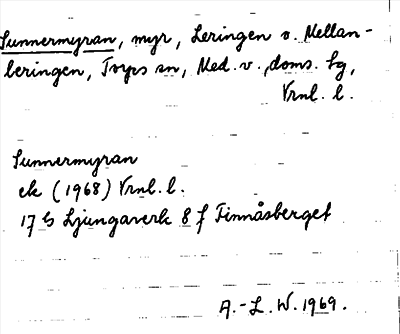 Sunnermyran, myr, Leringen o. Mellan-
leringen, Torps sn, Med. v. doms. hg,
Vrnl. l.
Sunnermyran
ek (1968) Vrnl. l.
17 G Ljungaverk 8 f Finnåsberget
A.-L. W. 1969.